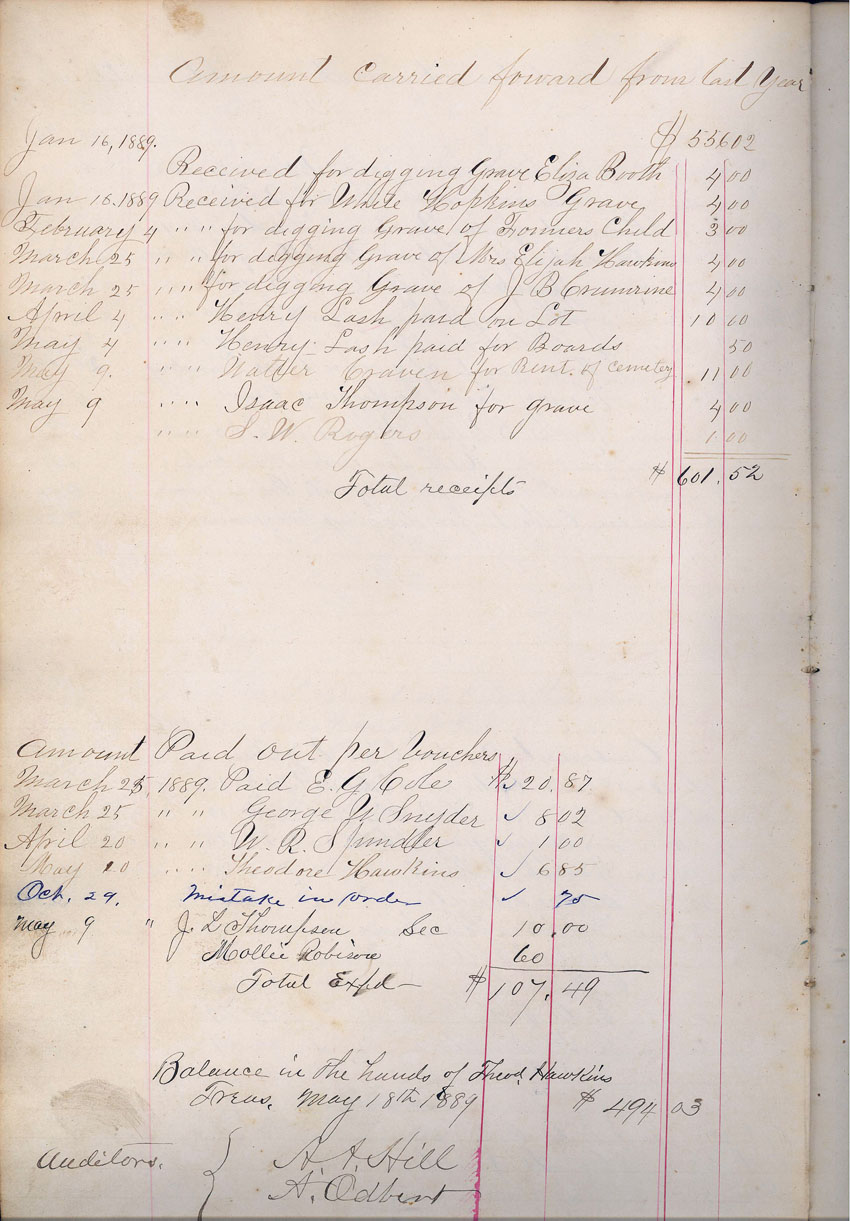 Amount Carried foward from last Year
Jan 16, 1889. $ 556 02
Received for digging Grave Eliza Booth 4 00
Jan 16. 1889 Received for White Hopkins Grave 4 00
February 4 " " for digging Grave of Formers Child 3 00
March 25 " " for digging Grave of Mrs Elijah Hawkins 4 00
March 25 " " for digging Grave of J B Crumrine 4 00
April 4 " " Henry Lash paid on Lot 10 00
May 4 " " Henry Lash paid for Boards 50
May 9. " " Walter Craven for Rent. of cemetery 11 00
May 9 " " Isaac Thompson for grave 4 00
" " S. W. Rogers 1 00
Total receipts $ 601. 52
Amount Paid out per Vouchers
March 25, 1889. Paid E. G. Cole $ ✓ 20. 87
March 25 " " George Y Snyder ✓ 8 02
April 20 " " W. R. Spindler ✓ 1 00
May 20 " " Theodore Hawkins ✓ 6 85
Oct. 29. Mistake in order ✓ 75
May 9 " J. L Thompson Sec 10.00
Mollie Robison 60
Total Expd— $ 107. 49
Balance in the hands of Theod. Hawkins
Treas. May 18th 1889 $ 494 03
Auditors. { A. A. Hill
A. Odbert